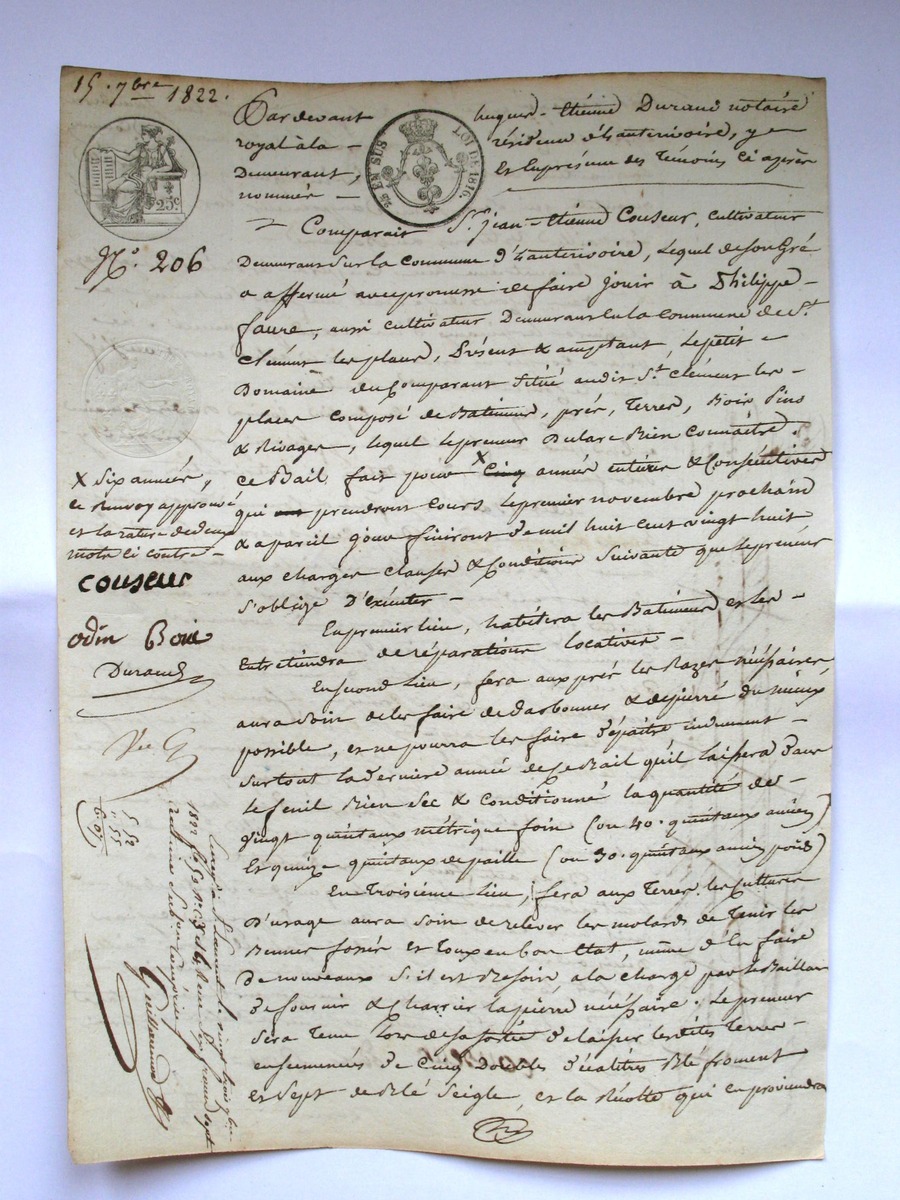 15. 7bre 1822.
25c
25 EN SUS
LOI DE 1816.
No. 206
Pardevant hugues-étienne Durand notaire
royal à la résidence d'hauterivoire, y
Demeurant, Et en présence des Témoins ci après
nommés
Comparait Sr. jean-étienne Couseur, cultivateur
Demeurant sur la commune d'hauterivoire, Lequel de son Gré
a affermé avec promesse de faire jouir à Philippe
faure, aussi cultivateur Demeurant en la commune de St.
Clément les places, Présent & acceptant Le petit
Domaine du Comparant Situé audit St. clément les
places composé de Batiments, prés, Terres, Bois Pins
& Rivages, lequel Le preneur Déclare Bien Connaitre.
Ce Bail fait pour x Cinq années entières & Consécutives
qui prendront Cours Le premier novembre prochain
& a pareil jour finiront de mil huit cent vingt huit
aux charges clauses & Conditions Suivantes que Le preneur
s'oblige D'exécuter
x Six années,
Ce Renvoy approuvé
et la rature de deux
mots ci contre
Couseur
odin Boie
Durand
En premier lieu, habitera les Batiments et les
Entretiendra de réparations locatives
En second Lieu, fera aux prés les Razes nécéssaires
aura soin de les faire dedarbonner & depierré du mieux
possible, et ne pourra les faire Dépaitre induement
Surtout la Dernière année de Ce Bail qu'il laissera Dans
Le feuil Bien Sec & Conditionné la quantité de
Vingt quintaux métrique foin (ou 40. quintaux anciens)
Et quinze quintaux de paille (ou 30. quintaux ancien poids)
En Troisième Lieu, fera aux Terres les Cultures
D'usage aura soin de relever les molards de Tenir les
Bennes fossés et Toux en bon état, même d'en faire
De nouveaux S'il est Besoin, à la charge par Le Baillan
De fournir & Charrier la pierre nécéssaire. Le preneur
Sera Tenu Lors de sa sortie De laisser lesdites Terres
ensemencées De Cinq Doubles Décalitres Blé froment
et Sept de Blé Seigle, et la Récolte qui en proviendra
5 50
" 55
6 05
Enregé à St Laurent le vingt trois 7bre
1822
Guillermin